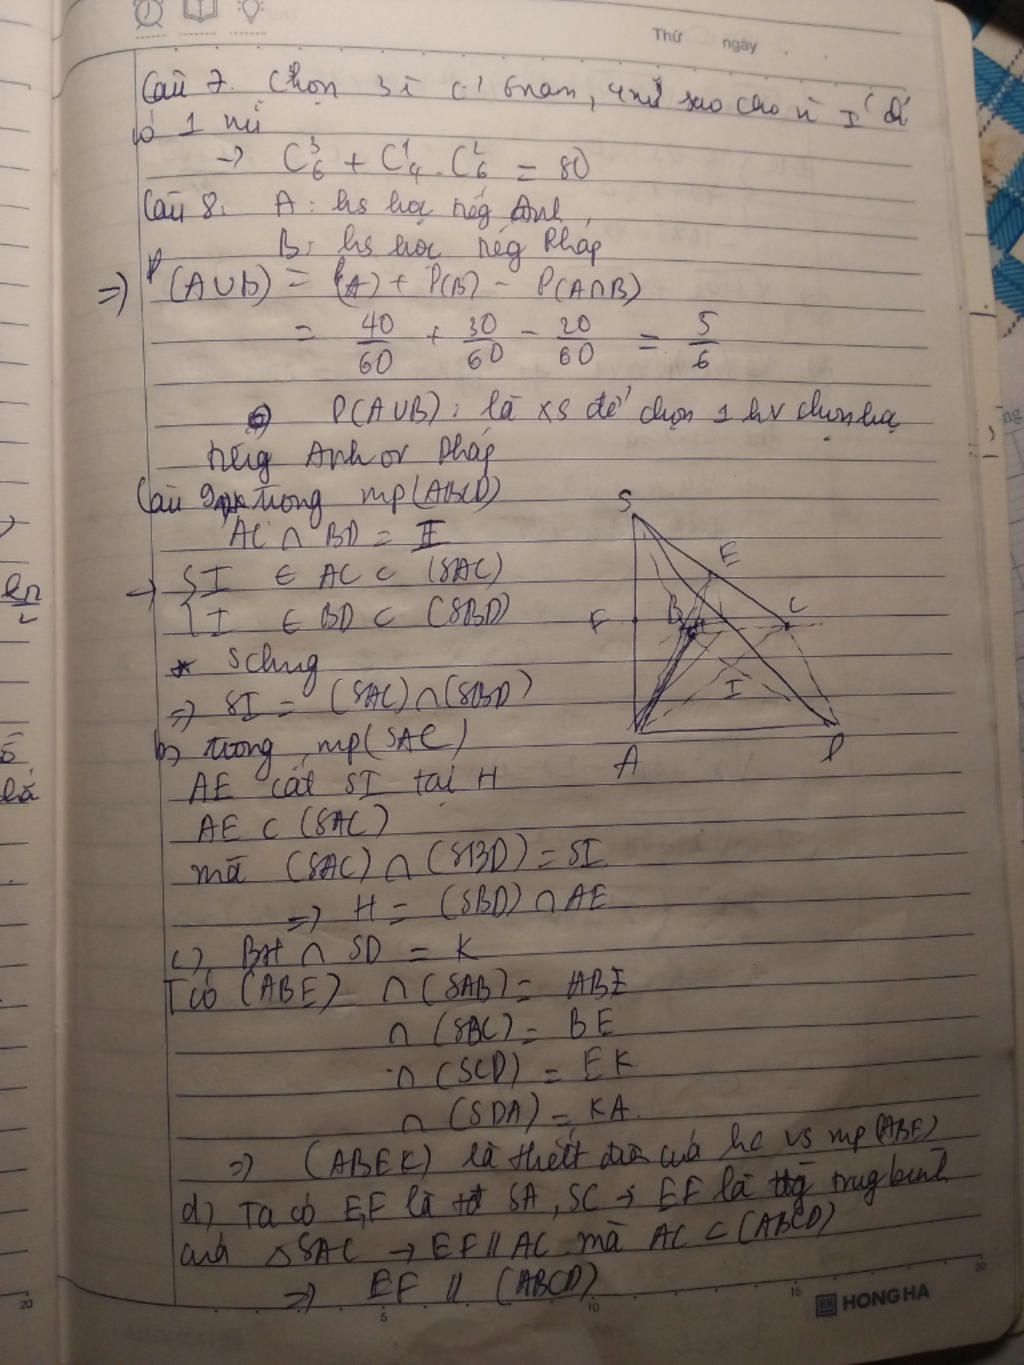 Thứ ngày
Câu 7. Chọn 3 từ 6 nam, 4 nữ sao cho
có 1 nữ
→ C³₆ + C¹₄ . C²₆ = 80
Câu 8: A: hs học tiếg Anh,
B: hs học tiếg Pháp
=> P(A∪B) = P(A) + P(B) - P(A∩B)
= 40/60 + 30/60 - 20/60 = 5/6
P(A∪B): là xs để chọn 1 hv chọn học
tiếng Anh or Pháp
Câu 9 trong mp(ABCD)
AC ∩ BD = I
→ { I ∈ AC ⊂ (SAC)
I ∈ BD ⊂ (SBD)
* S chug
=> SI = (SAC) ∩ (SBD)
b, trong mp(SAC)
AE cắt SI tại H
AE ⊂ (SAC)
mà (SAC) ∩ (SBD) = SI
=> H = (SBD) ∩ AE
c), BH ∩ SD = K
T có (ABE) ∩ (SAB) = AB
∩ (SBC) = BE
∩ (SCD) = EK
∩ (SDA) = KA.
=> (ABEK) là thiết diện của hc vs mp(ABE)
d) Ta có E,F là tđ SA, SC → EF là đg trug bình
của △SAC → EF // AC mà AC ⊂ (ABCD)
=> EF // (ABCD)
S
E
F
B
H
C
I
A
D
5
10
15
20
HONG HA
20